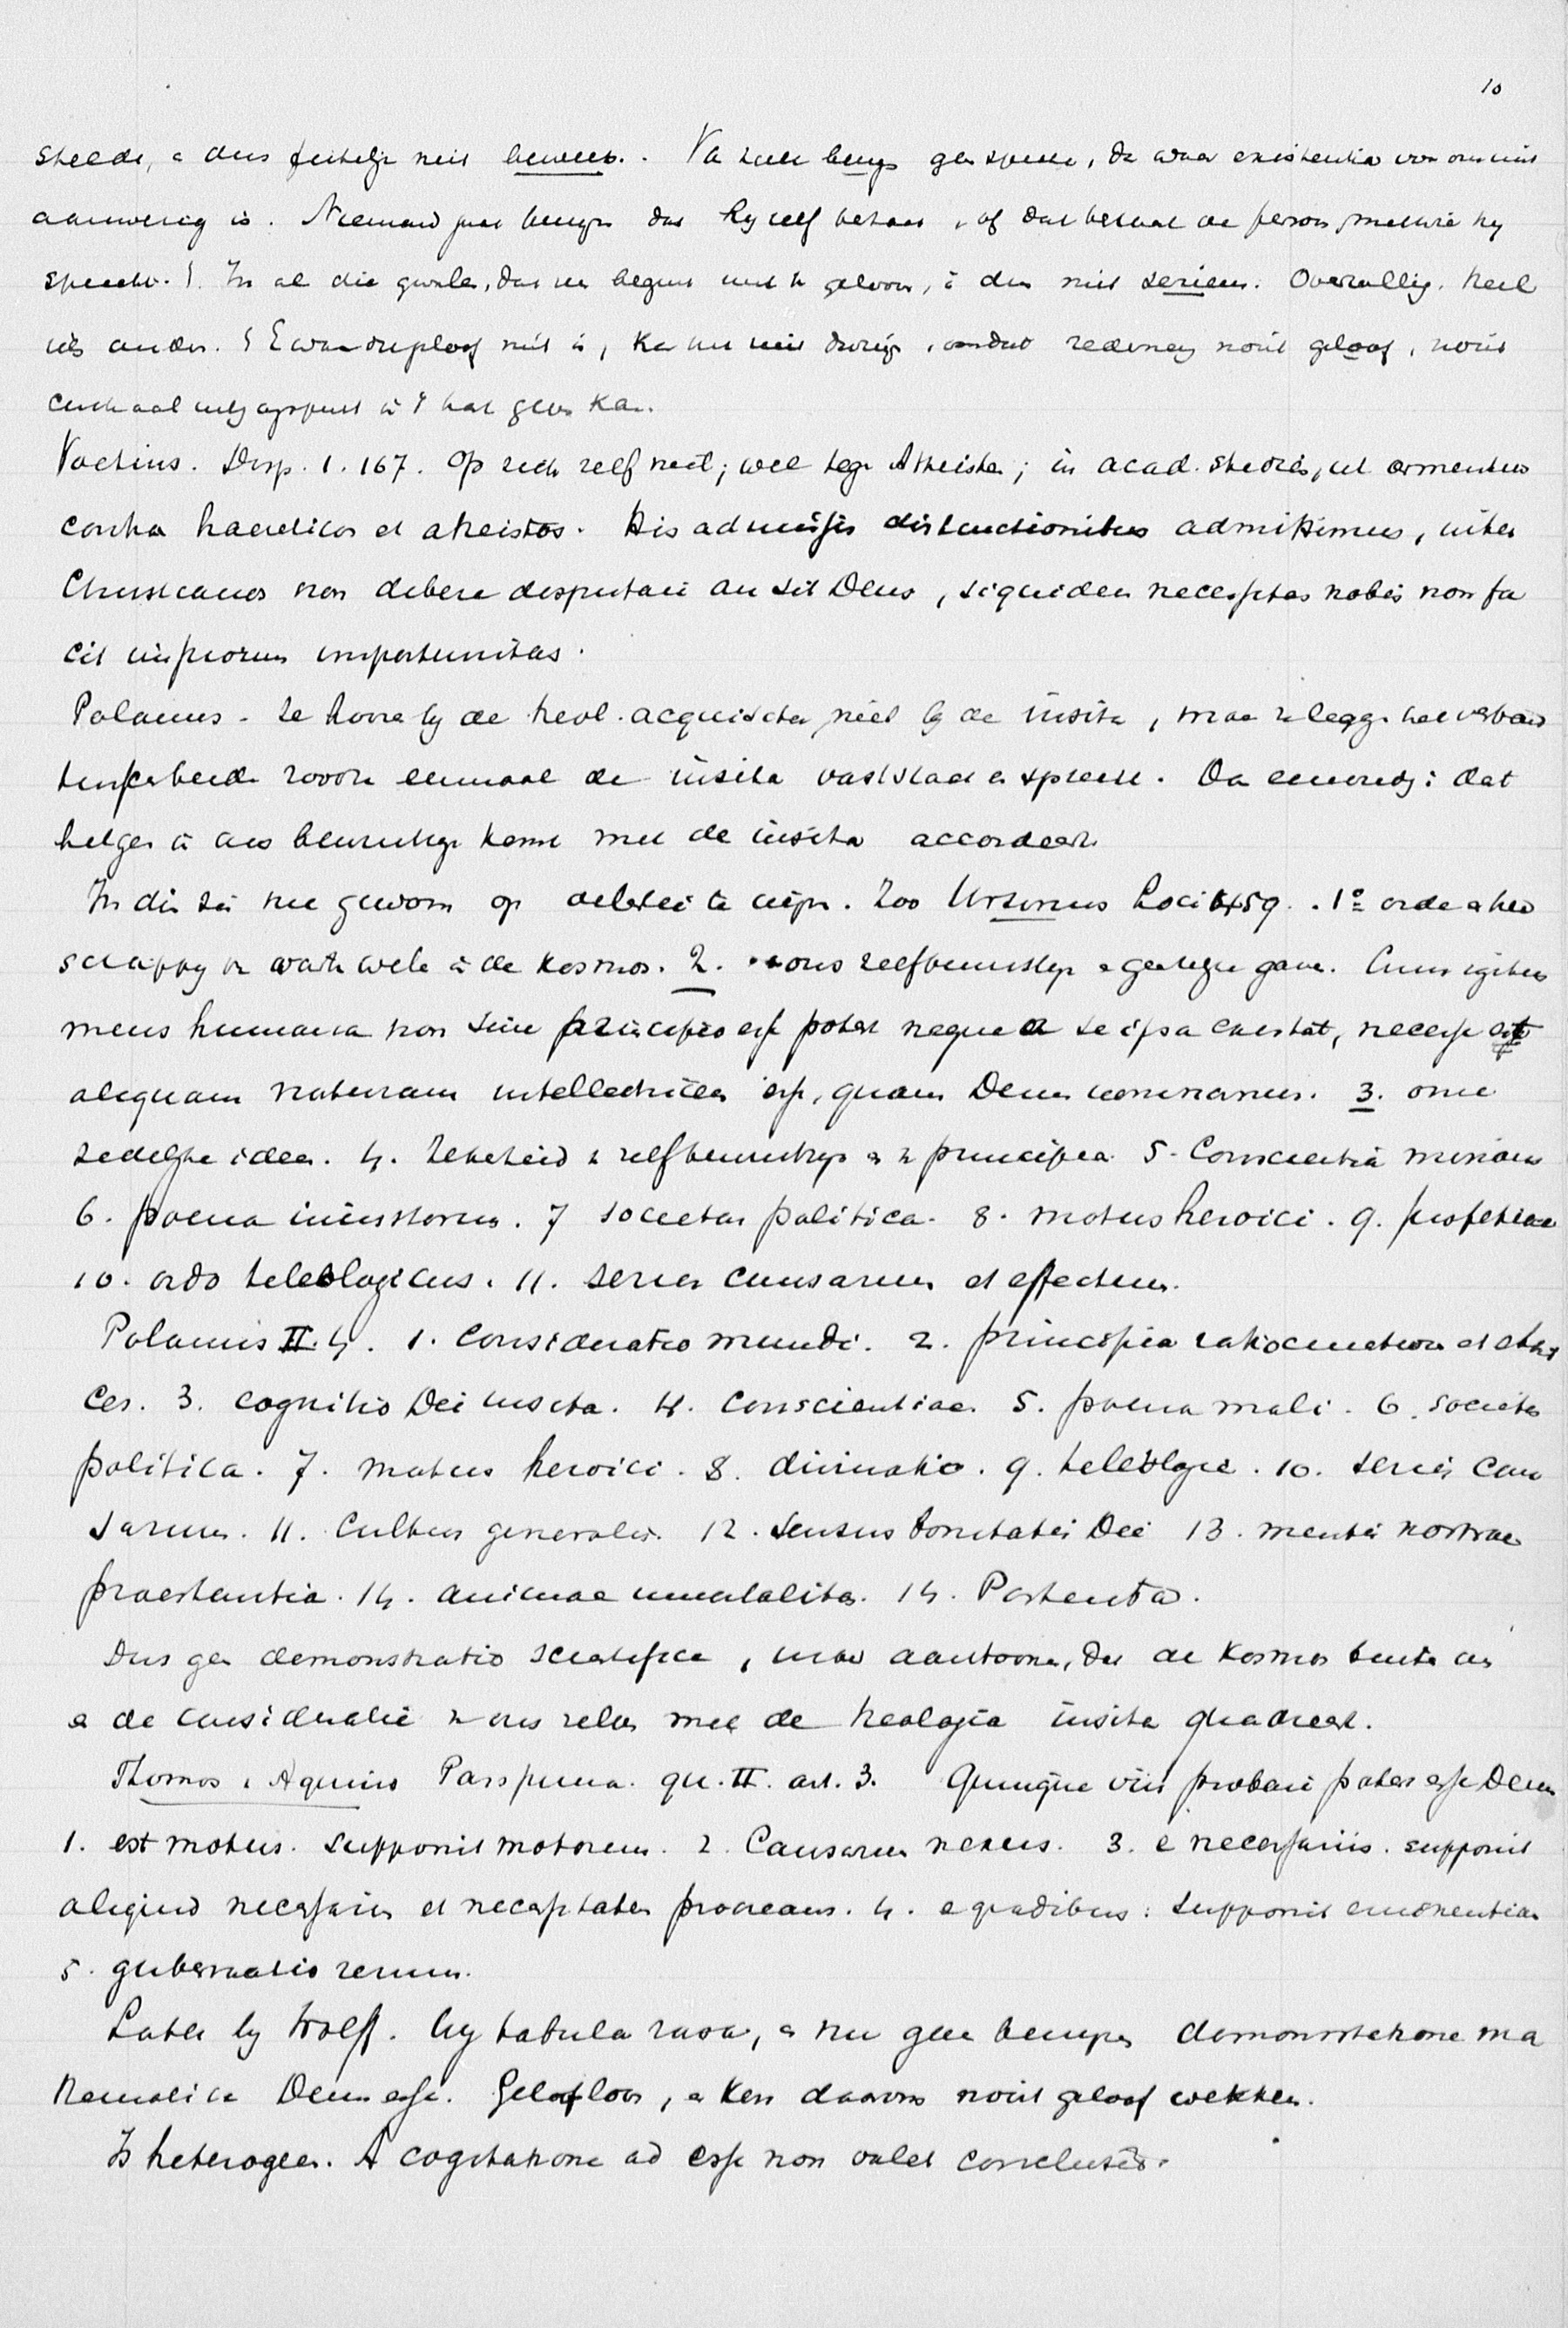 10
stelde, e dus feitelijk niet bewees. Va zulk bewijs gee sprake, da waar existentia voor ons niet
aanwezig is. Niemand gaat bewijze dat hy zelf bestaat, of dat bestaat de persoon, met wie hy
spreekt. In al die gevalle, dat we begint met te geloove, is dus niet serieus. Overtollig. heel
iets anders. Ewaar geloof niet is, ka me niet dwinge, omdat redeneng nooit geloof, nooit
centraal uitgangspunt i 't hart geve ka.
Voetius. Disp. 1. 167. Op zich zelf niet; wel tege Atheiste; in acad. studiis, ut armentur
contra haereticos et atheistos. His admissis distinctionibus admittimus, inter
Christianos non debere disputari an sit Deus, siquidem necessitas nobis non fa
cit impiorum importunitas.
Polanus. Ze hoore by de theol. acquisita niet by de insita, maa ze legge het verband
tussebeide zoodra eenmaal de insita vaststaat e spreekt. Da eenvoudig: dat
hetgee i ons bewustzijn komt met de insita accordeert.
In die zi nu gewoon op allerlei te wijze. Zoo Ursinus Loci 459. 1º orde e heer
schappy v wath wele i de Kosmos. 2. ons zelfbewustzijn e geestelijke gave. Cum igitur
mens humana non sine principio esse potest neque a se ipsa existat, necesse est
aliquam naturam intellectricem esse, quam Deum nominamus. 3. onze
zedelijke idee. 4. Zekerheid v zelfbewustzijn e v principia. 5. Conscientia
6. poena iniustorum. 7 societas politica. 8. motus heroici. 9. profetiae
10. ordo teleologicus. 11. series causarum et effectuum.
Polanus II. 4. 1. Consideratio mundi. 2. principia ratiocinationis et ethi
ces. 3. cognitio Dei insita. 4. conscientiae. 5. poena mali. 6. societas
politica. 7. motus heroici. 8. divinatio. 9. teleologie. 10. series cau
sarum. 11. Cultus generalis. 12. sensus bonitatis Dei 13. mentis nostrae
praestantia. 14. animae immortalitas. 14. Portenta.
Dus gee demonstratio scientifica, maa aantoone, dat de Kosmos buite ons
e de consideratie v ons zelve met de theologia insita quadreert.
Thomas v Aquino Pars prima. qu. II. art. 3. Quinque viis probari potest esse Deum
1. est motus. supponit motorem. 2. Causarum nexus. 3. e necessariis. supponit
aliquid necessarium et necessitatem procreans. 4. e gradibus: supponit eminentiam
5. gubernatio rerum.
Later by Wolff. hy tabula rasa, e nu gaa bewijze demonstratione ma
thematica Deum esse. Geloofloos, e kon daarom nooit geloof wekken.
Is heterogee. A cogitatione ad esse non valet conclusio.